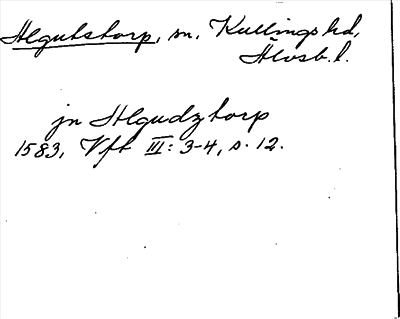 Algutstorp, sn, Kullings hd,
Älvsb. l.
jn Algudztorp
1583, Vft III: 3-4, s. 12.